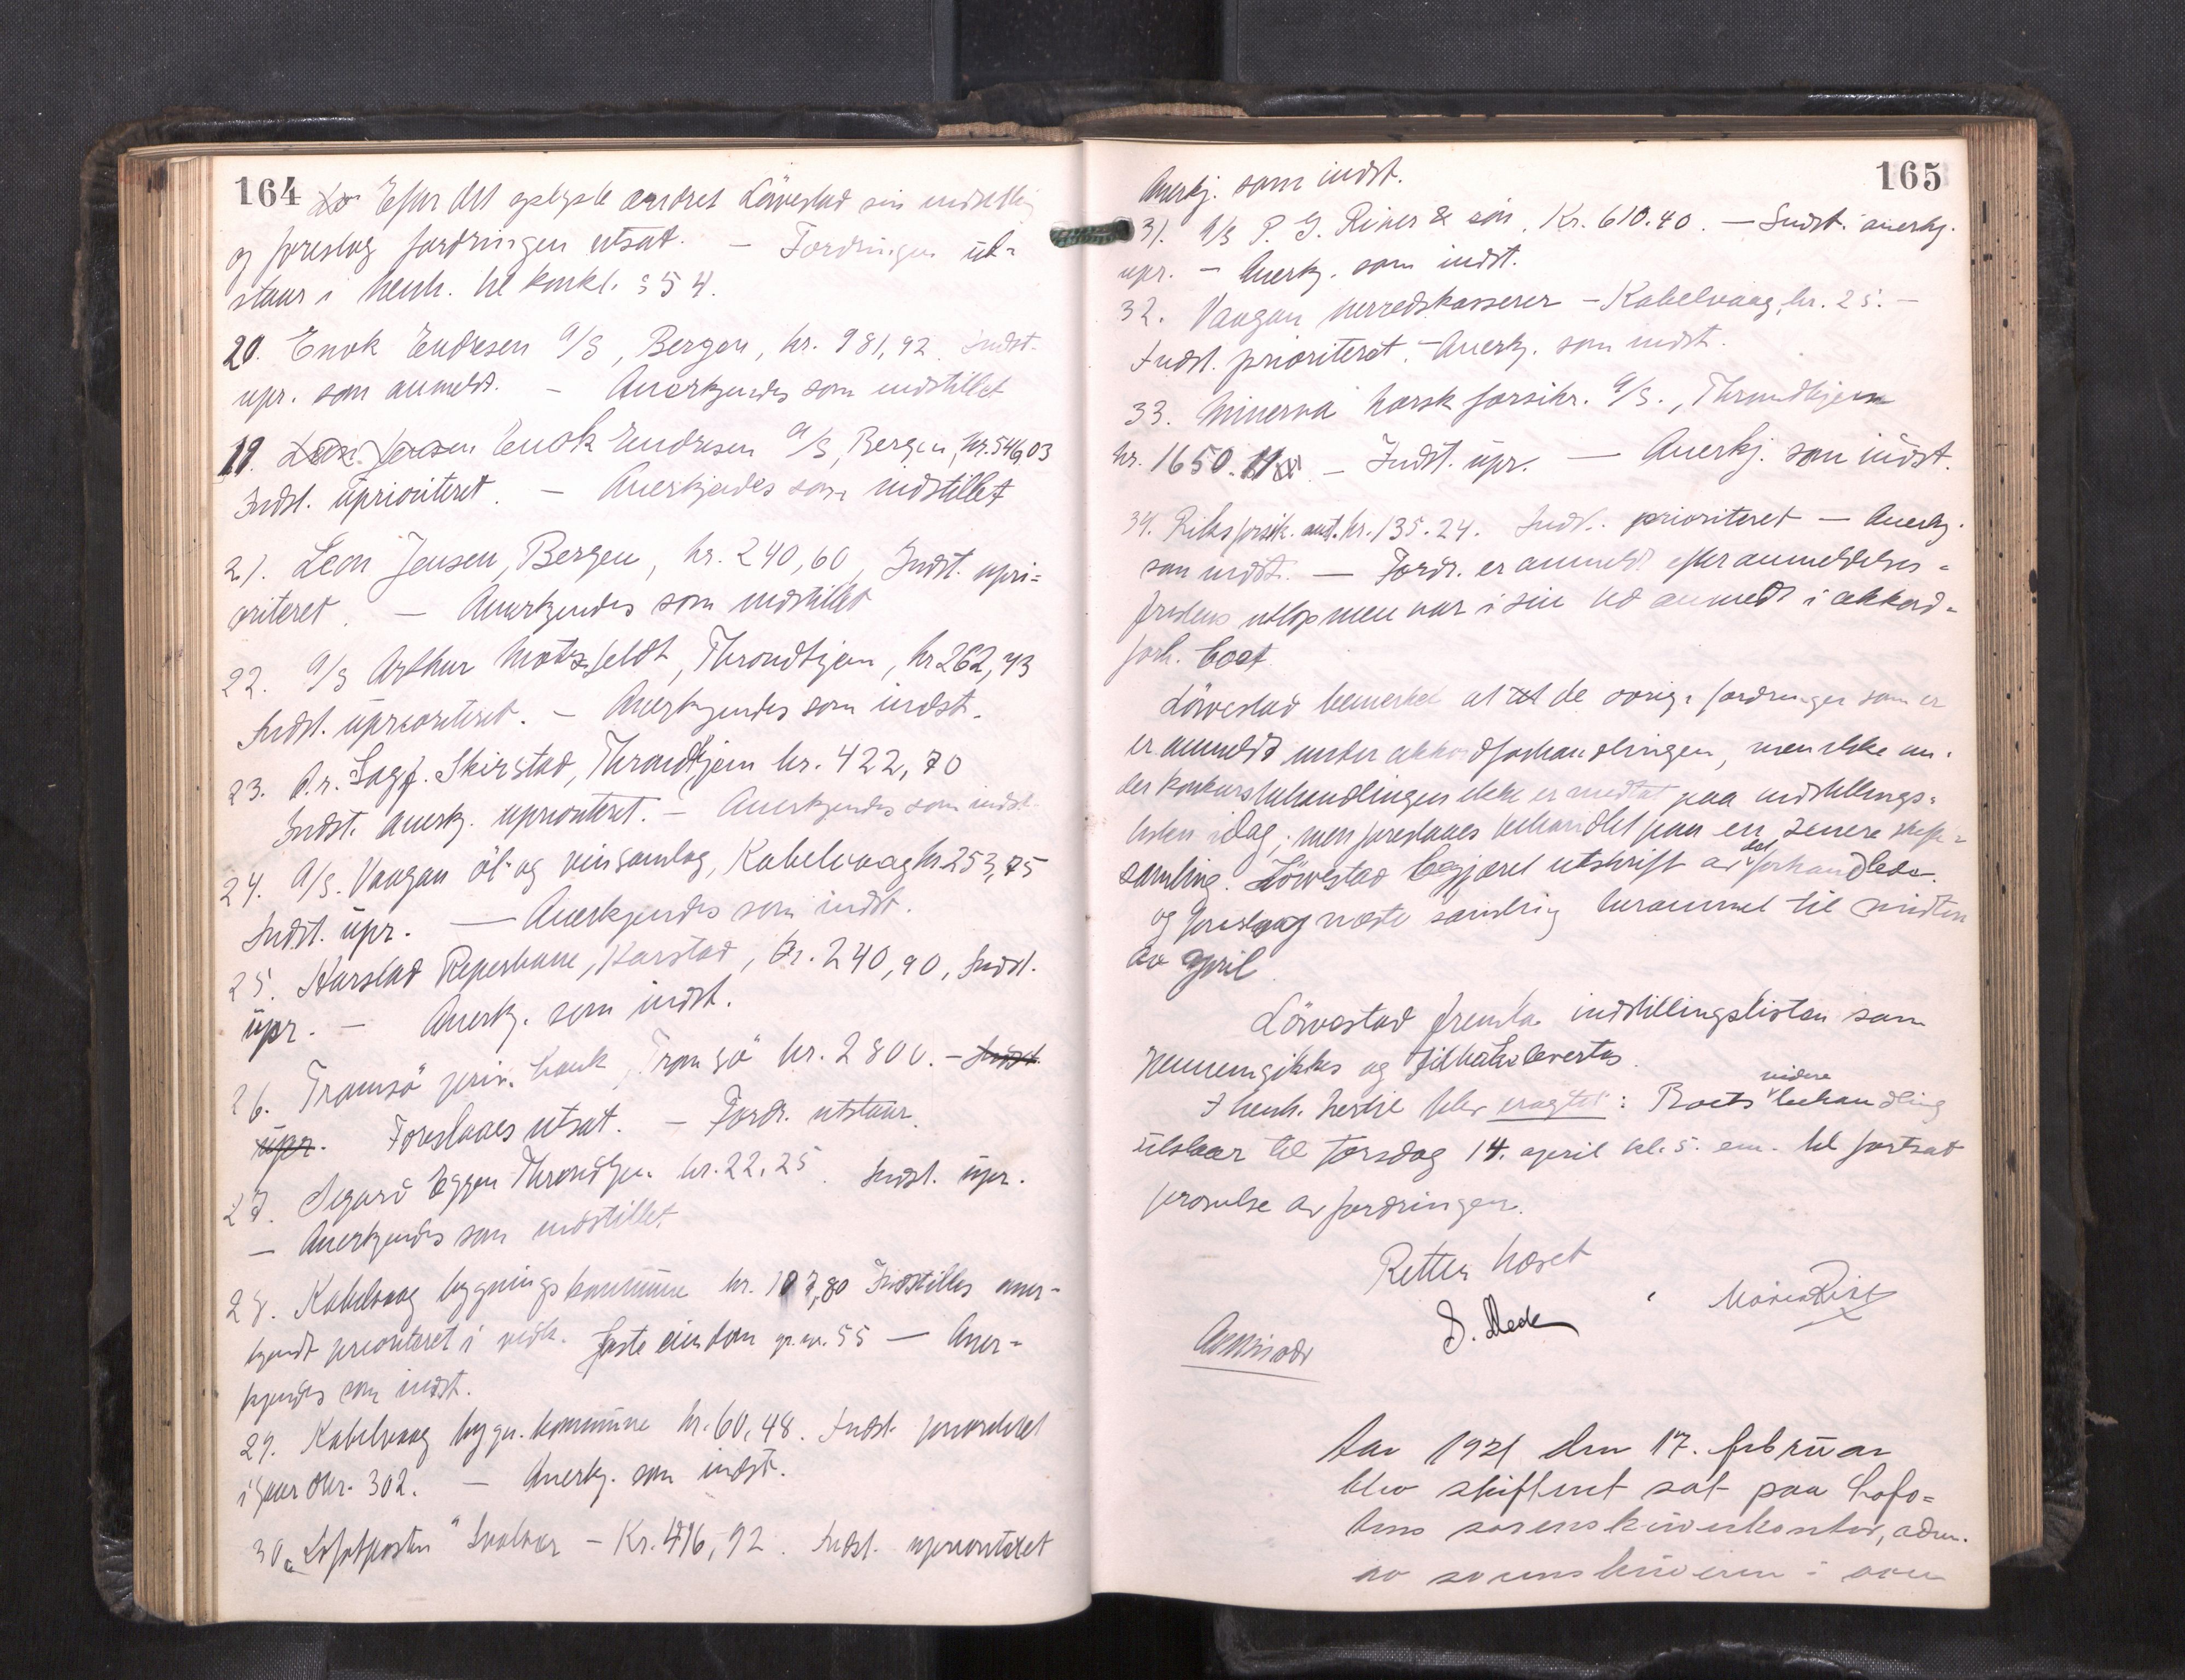 164
Efter det oplyste ændret Löwestad sin indstilling
og foreslog fordringen utsat. — Fordringen ut-
staar i henh. til konkl. § 54.
20. Enok Endresen A/S, Bergen, kr. 981,92. Indst.
upr. som anmeldt. — Anerkjendes som indstillet
19. Enok Endresen A/S, Bergen, kr. 546,03
Indst. uprioriteret. — Anerkjendes som indstillet
21. Leon Jensen, Bergen, kr. 240,60, Indst. upri-
oriteret. — Anerkjendes som indstillet
22. A/S Arthur Motzfeldt, Throndhjem, kr 262,43
Indst. uprioriteret. — Anerkjendes som indst.
23. O.r. Sagf. Skirstad, Throndhjem kr. 422,70
Indst. anerkj. uprioriteret. — Anerkjendes som indst.
24. A/S. Vaagan öl- og vinsamlag, Kabelvaag kr 253,75
Indst. upr. — Anerkjendes som indst.
25. Harstad Reperbane, Harstad, kr. 240,90, Indst.
upr. — Anerkj. som indst.
26. Tromsö priv. bank, Tromsö kr. 2800. — Indst.
upr. Foreslaaes utsat. — Fordr. utstaar.
27. Sigurd Eggen Throndhjem kr. 22.25. Indst. upr.
— Anerkjendes som indstillet
28. Kabelvaag bygningskommune kr. 107,80 Indstilles aner-
kjendt prioriteret i faste eiendom gr.nr. 55 — Aner-
kjendes som indst.
29. Kabelvaag bygn. kommune kr. 60,48. Indst. prioriteret
i gaar 302. — Anerkj. som indst.
30. "Lofotposten" Svolvær — Kr. 416,92. Indst. uprioriteret
165
Anerkj. som indst.
31. A/S P. G. Rieber & sön, Kr. 610.40. — Indst. anerkj.
upr. — Anerkj. som indst.
32. Vaagan herredskasserer — Kabelvaag, kr. 25. —
Indst. prioriteret. — Anerkj. som indst.
33. Minerva norsk forsikr. A/S., Throndhjem
kr. 1650.11 — Indst. upr. — Anerkj. som indst.
34. Riksforsik. anst. kr. 135.24. Indst. prioriteret — Anerkj.
som indst. — Fordr. er anmeldt efter anmeldelses-
fristens utlöp men var i sin tid anmeldt i akkord-
forh. boet.
Löwestad bemerket at de övrige fordringer som er
er anmeldt under akkordforhandlingen, men ikke un-
der konkursbehandlingen ikke er medtat paa indstillings-
listen idag, men foreslaaes behandlet paa en senere skifte-
samling. Löwestad begjæret utskrift av det forhandlede
og foreslaog næste samling berammet til midten
av april.
Löwestad fremla indstillingslisten som
gjennemgikkes og tilbakelevertes.
I henh. hertil blev eragtet: Boets videre behandling
utstaar til torsdag 14. april kl. 5. em. til fortsat
prövelse av fordringer.
Retten hævet
Aar 1921 den 17. februar
blev skifteret sat paa Lofo-
tens sorenskriverkontor, adm.
av sorenskriveren i